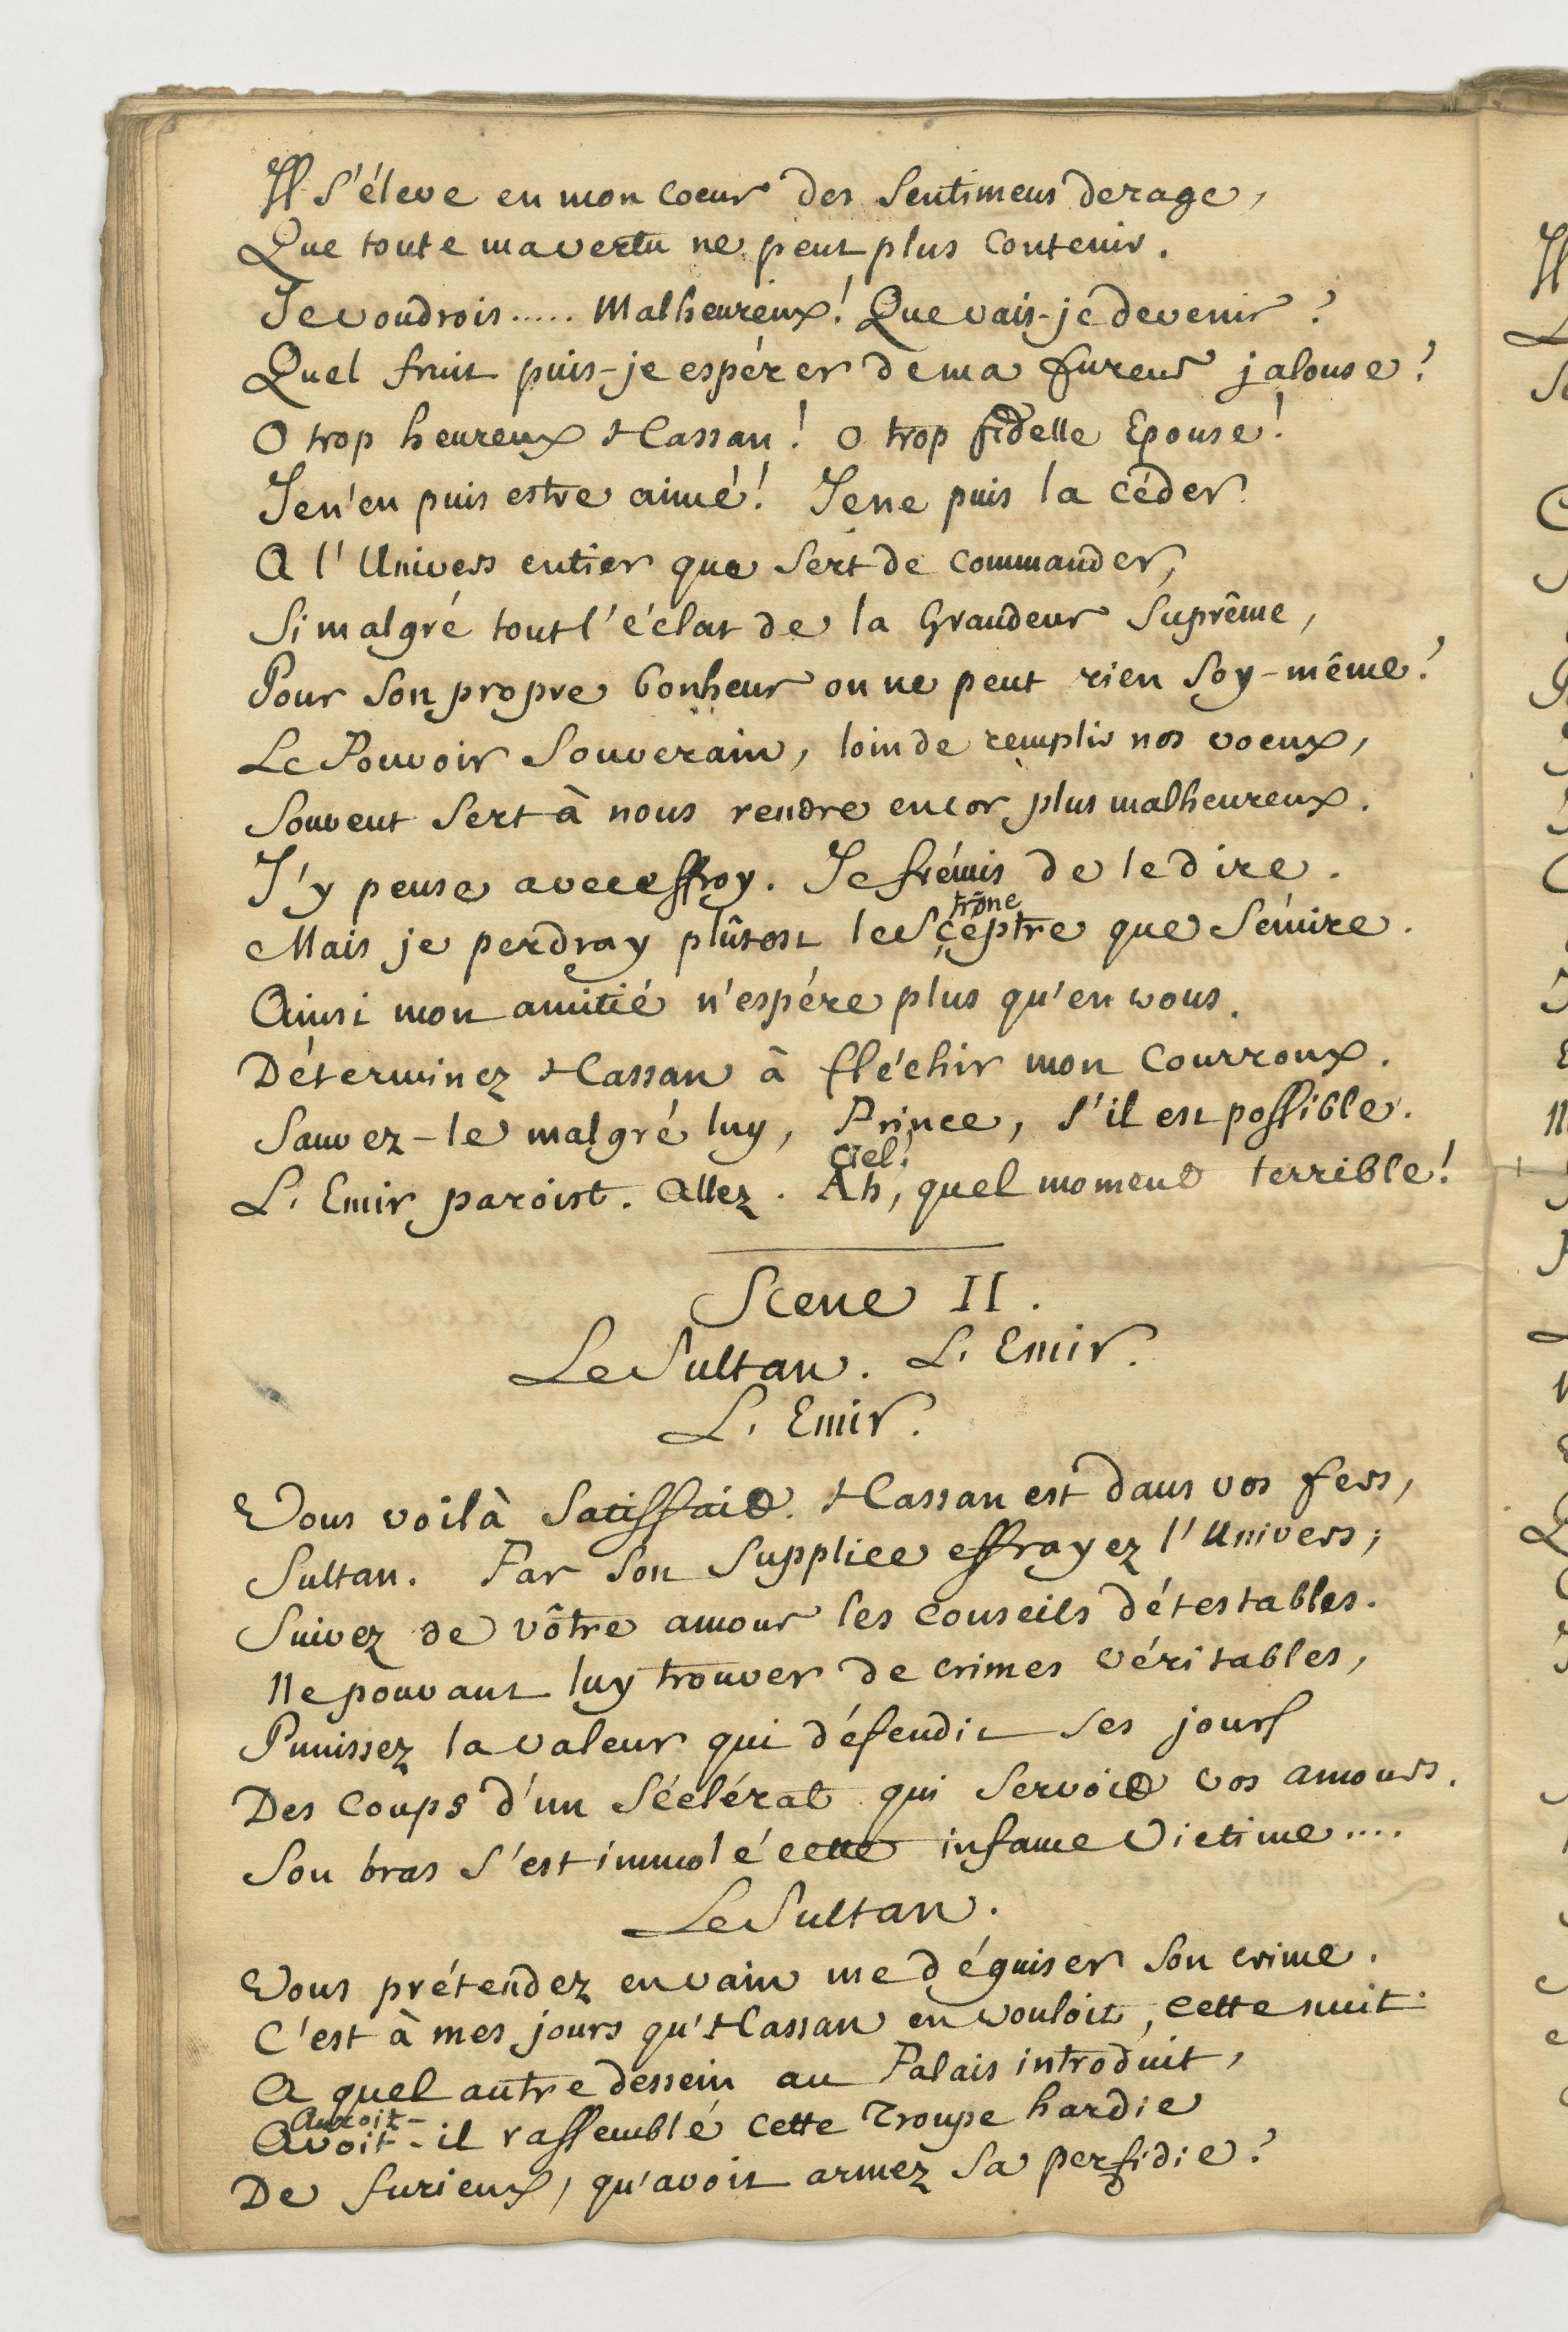 Il s'éleve en mon coeur des sentimens de rage,
Que toute ma vertu ne peut plus contenir.
Je voudrois..... Malheureux! Que vais-je devenir?
Quel fruit puis-je espérer de ma fureur jalouse?
O trop heureux Hassan! O trop fidelle Epouse!
Je n'en puis estre aimé! Je ne puis la céder.
A l'Univers entier que sert de commander,
Si malgré tout l'éclat de la Grandeur Suprême,
Pour son propre bonheur on ne peut rien soy-même?
Le Pouvoir Souverain, loin de remplir nos voeux,
Souvent sert à nous rendre encor plus malheureux.
J'y pense avec effroy. Je frémis de le dire.
trône
Mais je perdray plûtost le Sceptre que Sémire.
Ainsi mon amitié n'espére plus qu'en vous.
Déterminez Hassan à fléchir mon Courroux.
Sauvez-le malgré luy, Prince, s'il est possible.
Ciel!
L'Emir paroist. Allez. Ah, quel moment terrible!
Scene II.
Le Sultan. L'Emir.
L'Emir.
Vous voilà satisfait. Hassan est dans vos fers,
Sultan. Par son supplice effrayez l'Univers;
Suivez de vôtre amour les conseils détestables.
Ne pouvant luy trouver de crimes véritables,
Punissez la valeur qui défendit ses jours
Des coups d'un scélérat qui servoit vos amours.
Son bras s'est immolé cette infame victime....
Le Sultan.
Vous prétendez en vain me déguiser son crime.
C'est à mes jours qu'Hassan en vouloit, cette nuit.
A quel autre dessein au Palais introduit,
Auroit-
Avoit-il rassemblé cette Troupe hardie
De furieux, qu'avoit armez sa perfidie?